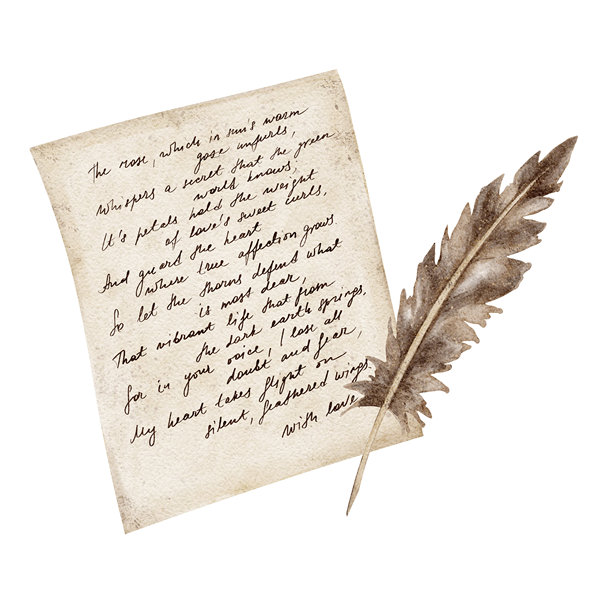 The rose, which in sun's warm
gaze unfurls,
Whispers a secret that the green
world knows;
It's petals hold the weight
of love's sweet curls,
And guard the heart
where true affection grows.
So let the thorns defend what
is most dear,
That vibrant life that from
the dark earth springs,
For in your voice, I lose all
doubt and fear,
My heart takes flight on
silent, feathered wings.
With love